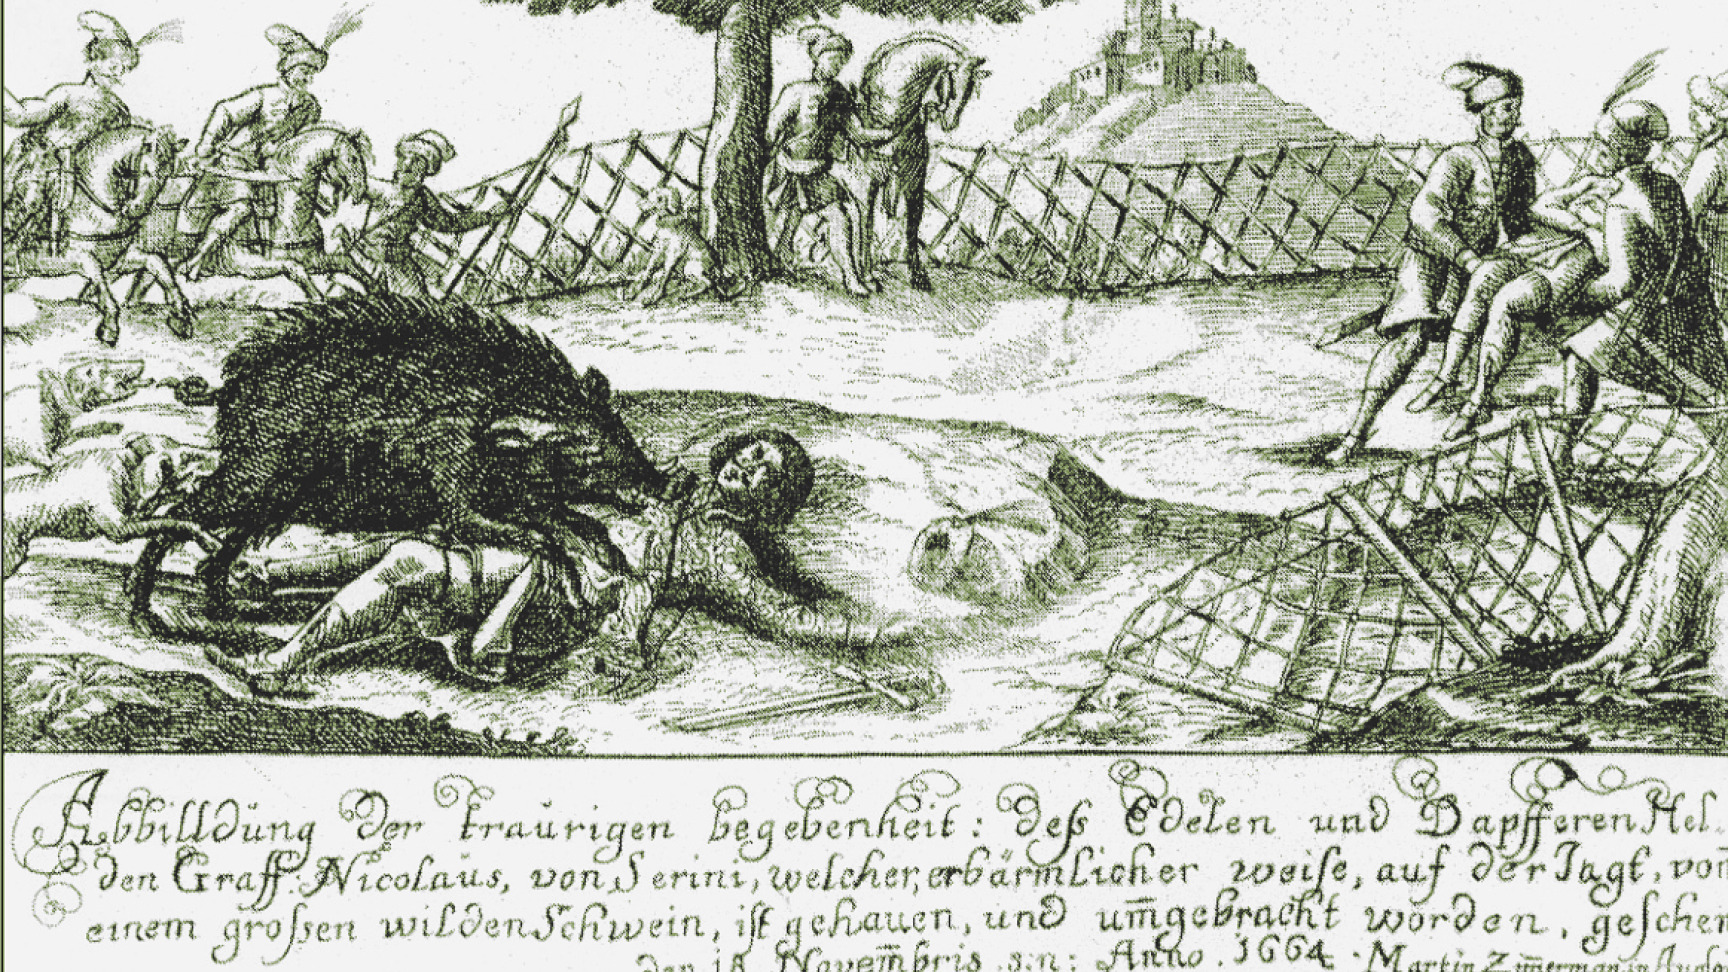 Abbilldüng der traürigen begebenheit: deß Edelen und Dapfferen Hel.
den Graff: Nicolaüs, von Serini, welcher, erbärmlicher weiſe, auf der Jagt, von
einem groſsen wilden Schwein, iſt gehauen, und um̄gebracht worden, geſchen
den 18 Novem̄bris s:n: Anno. 1664 · Martin Zim̄erman in Augſp